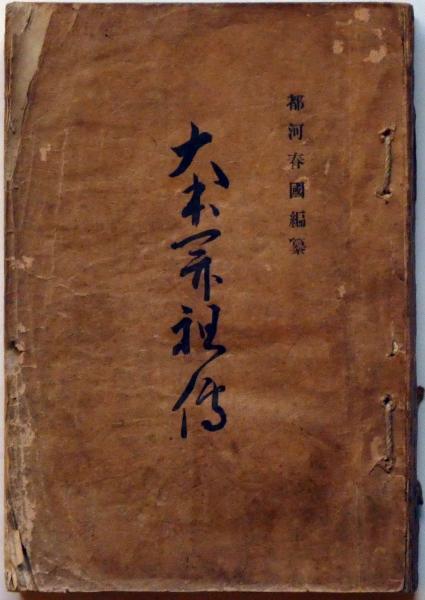 都河春國編纂
大本開祖傳